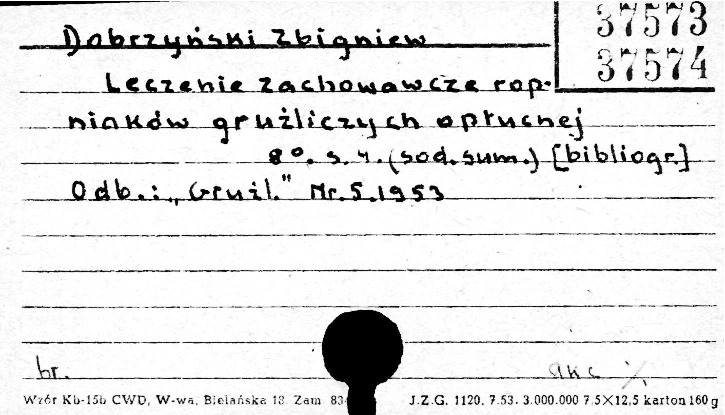 Dobrzyński Zbigniew
37573
37574
Leczenie zachowawcze rop-
niaków gruźliczych opłucnej
8°. s. 4. (sod. sum.) [bibliogr.]
Odb.: „Gruźl." Nr. 5. 1953
br.
akc
Wzór Kb-15b CWD, W-wa, Bielańska 18 Zam 83
J.Z.G. 1120. 7.53. 3.000.000 7.5×12,5 karton 160 g